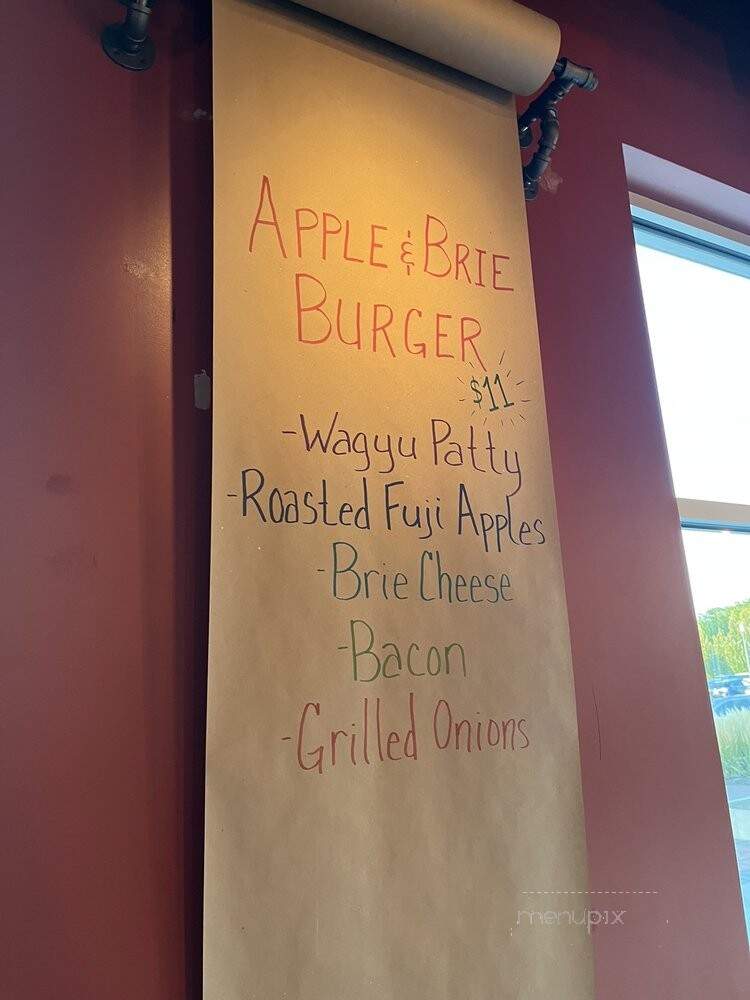 APPLE & BRIE
BURGER
$11
-Wagyu Patty
-Roasted Fuji Apples
-Brie Cheese
-Bacon
-Grilled Onions
menupix